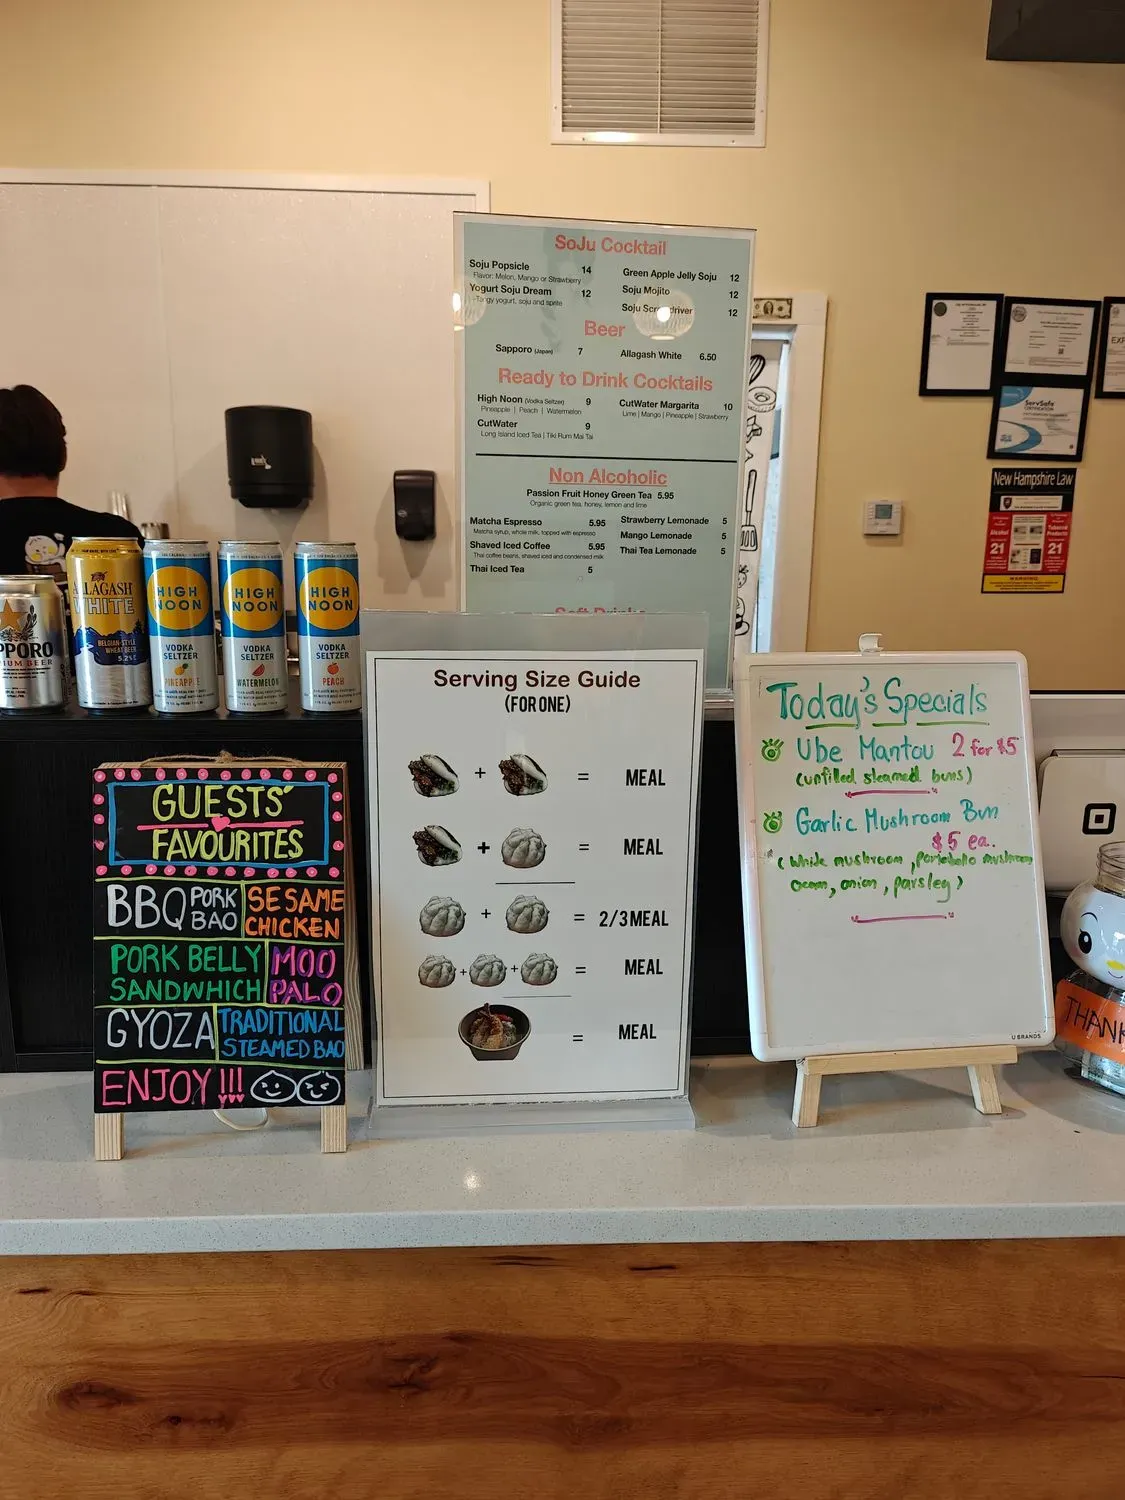 SoJu Cocktail
Soju Popsicle 14
Flavor: Melon, Mango or Strawberry
Yogurt Soju Dream 12
Tangy yogurt, soju and sprite
Green Apple Jelly Soju 12
Soju Mojito 12
Soju 12
Beer
Sapporo (Japan) 7
Allagash White 6.50
Ready to Drink Cocktails
High Noon (Vodka Seltzer) 9
Pineapple | Peach | Watermelon
CutWater 9
Long Island Iced Tea | Tiki Rum Mai Tai
CutWater Margarita 10
Lime | Mango | Pineapple | Strawberry
Non Alcoholic
Passion Fruit Honey Green Tea 5.95
Organic green tea, honey, lemon and lime
Matcha Espresso 5.95
Matcha syrup, whole milk, topped with espresso
Shaved Iced Coffee 5.95
Thai coffee beans, shaved iced and condensed milk
Thai Iced Tea 5
Strawberry Lemonade 5
Mango Lemonade 5
Thai Tea Lemonade 5
Soft Drinks
ServSafe
CERTIFICATION
New Hampshire Law
Alcohol
21
Tobacco
Products
21
WARNING
PPORO
IUM BEER
ALLAGASH
WHITE
BELGIAN-STYLE
WHEAT BEER
HIGH
NOON
VODKA
SELTZER
PINEAPPLE
HIGH
NOON
VODKA
SELTZER
WATERMELON
HIGH
NOON
VODKA
SELTZER
PEACH
GUESTS'
FAVOURITES
BBQ PORK BAO
SESAME
CHICKEN
PORK BELLY
SANDWHICH
MOO
PALO
GYOZA
TRADITIONAL
STEAMED BAO
ENJOY!!!
Serving Size Guide
(FOR ONE)
+ = MEAL
+ = MEAL
+ = 2/3 MEAL
+ + = MEAL
= MEAL
Today's Specials
Ube Mantou 2 for $5
(unfilled steamed buns)
Garlic Mushroom Bun
$5 ea.
(White mushroom, portobello mushroom
onion, parsley)
U BRANDS
THANK